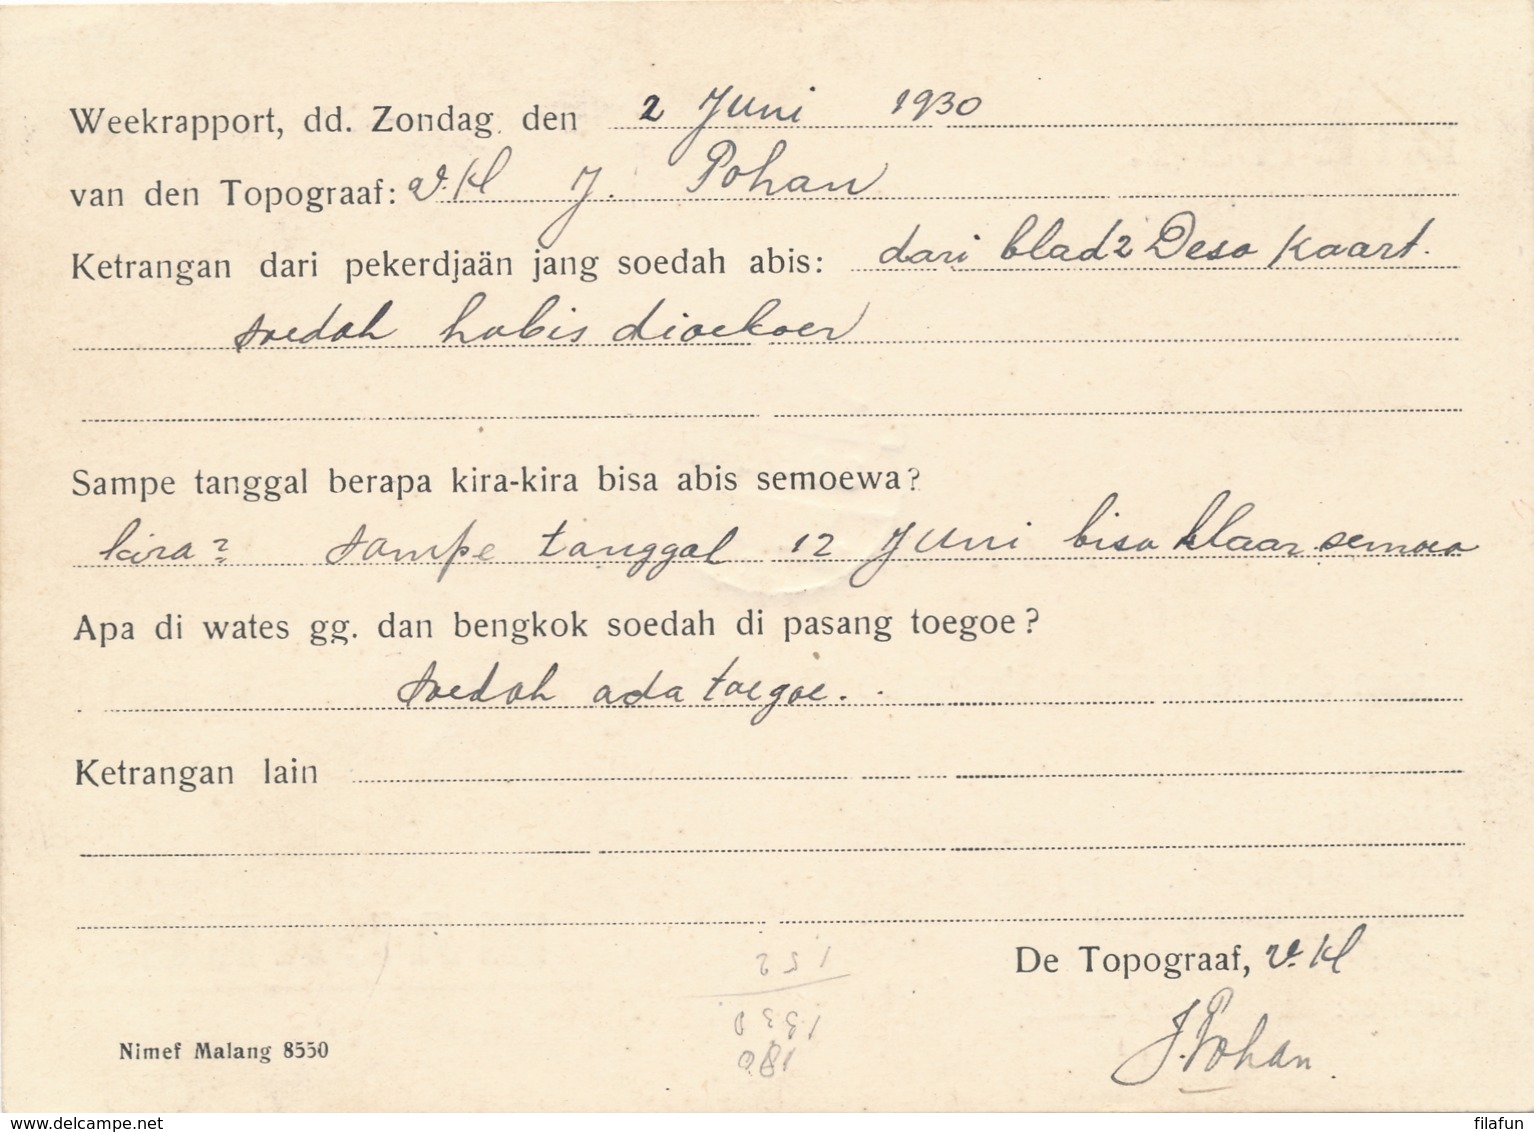 Weekrapport, dd. Zondag den 2 Juni 1930
van den Topograaf: v. Kl J. Pohan
Ketrangan dari pekerdjaän jang soedah abis: dari blad2 Desa Kaart.
soedah habis dioekoer
Sampe tanggal berapa kira-kira bisa abis semoewa?
kira2 sampe tanggal 12 Juni bisa klaar semoea
Apa di wates gg. dan bengkok soedah di pasang toegoe?
soedah ada toegoe.
Ketrangan lain
De Topograaf, v. Kl
J. Pohan
Nimef Malang 8550
delcampe.net
filafun